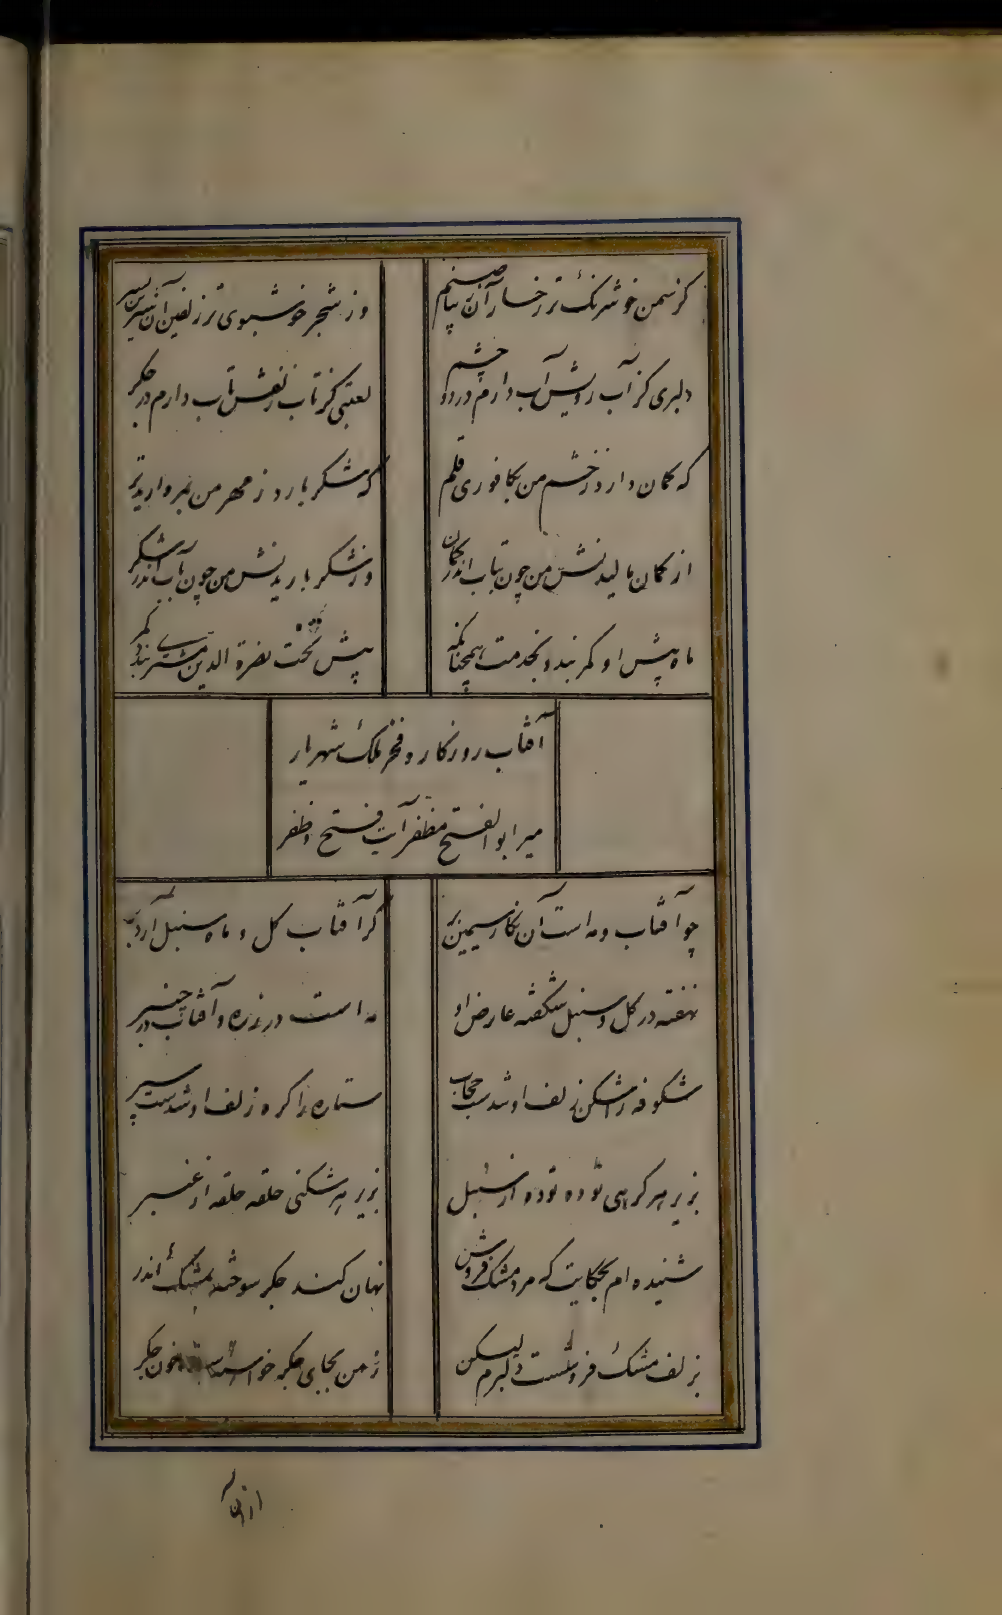 کز سمن خوشرنک تر رخسار آن زیبا صنم
وز شجر خوشبوی تر زلفین آن شیرین پسر
دلبری کز آب رویش آب دارم در دو چشم
لعبتی کز تاب زلفش تاب دارم در جکر
که کمان دارد ز خشم من بکافوری قلم
که شکر بارد ز مهر من بمروارید تر
از کمان مالیدنش من چون بتاب اندر کمان
وز شکر باریدنش من چون بآب اندر شکر
ماه پیش او کمر بندد بخدمت همچنانکه
پیش تخت نصرة الدین مشتری بندد کمر
آفتاب روزکار و فخر ملک شهریار
میر ابو الفتح مظفر آیت فتح و ظفر
چو آفتاب و مه است آن نکار سیمین بر
کر آفتاب کل و ماه سنبل آرد بر
نهفته در کل و سنبل شکفته عارض او
مه است در زره و آفتاب در چنبر
شکوفه را شکن زلف او شدست حجاب
ستاره را کره زلف او شدست سپر
بزیر هر کرهی توده توده از سنبل
بزیر هر شکنی حلقه حلقه از عنبر
شنیده ام بحکایت که مرد مشک فروش
نهان کند جکر سوخته بمشک اندر
بزلف مشک فروشست دلبرم لیکن
ز من بجای جکر خواسته خون جکر